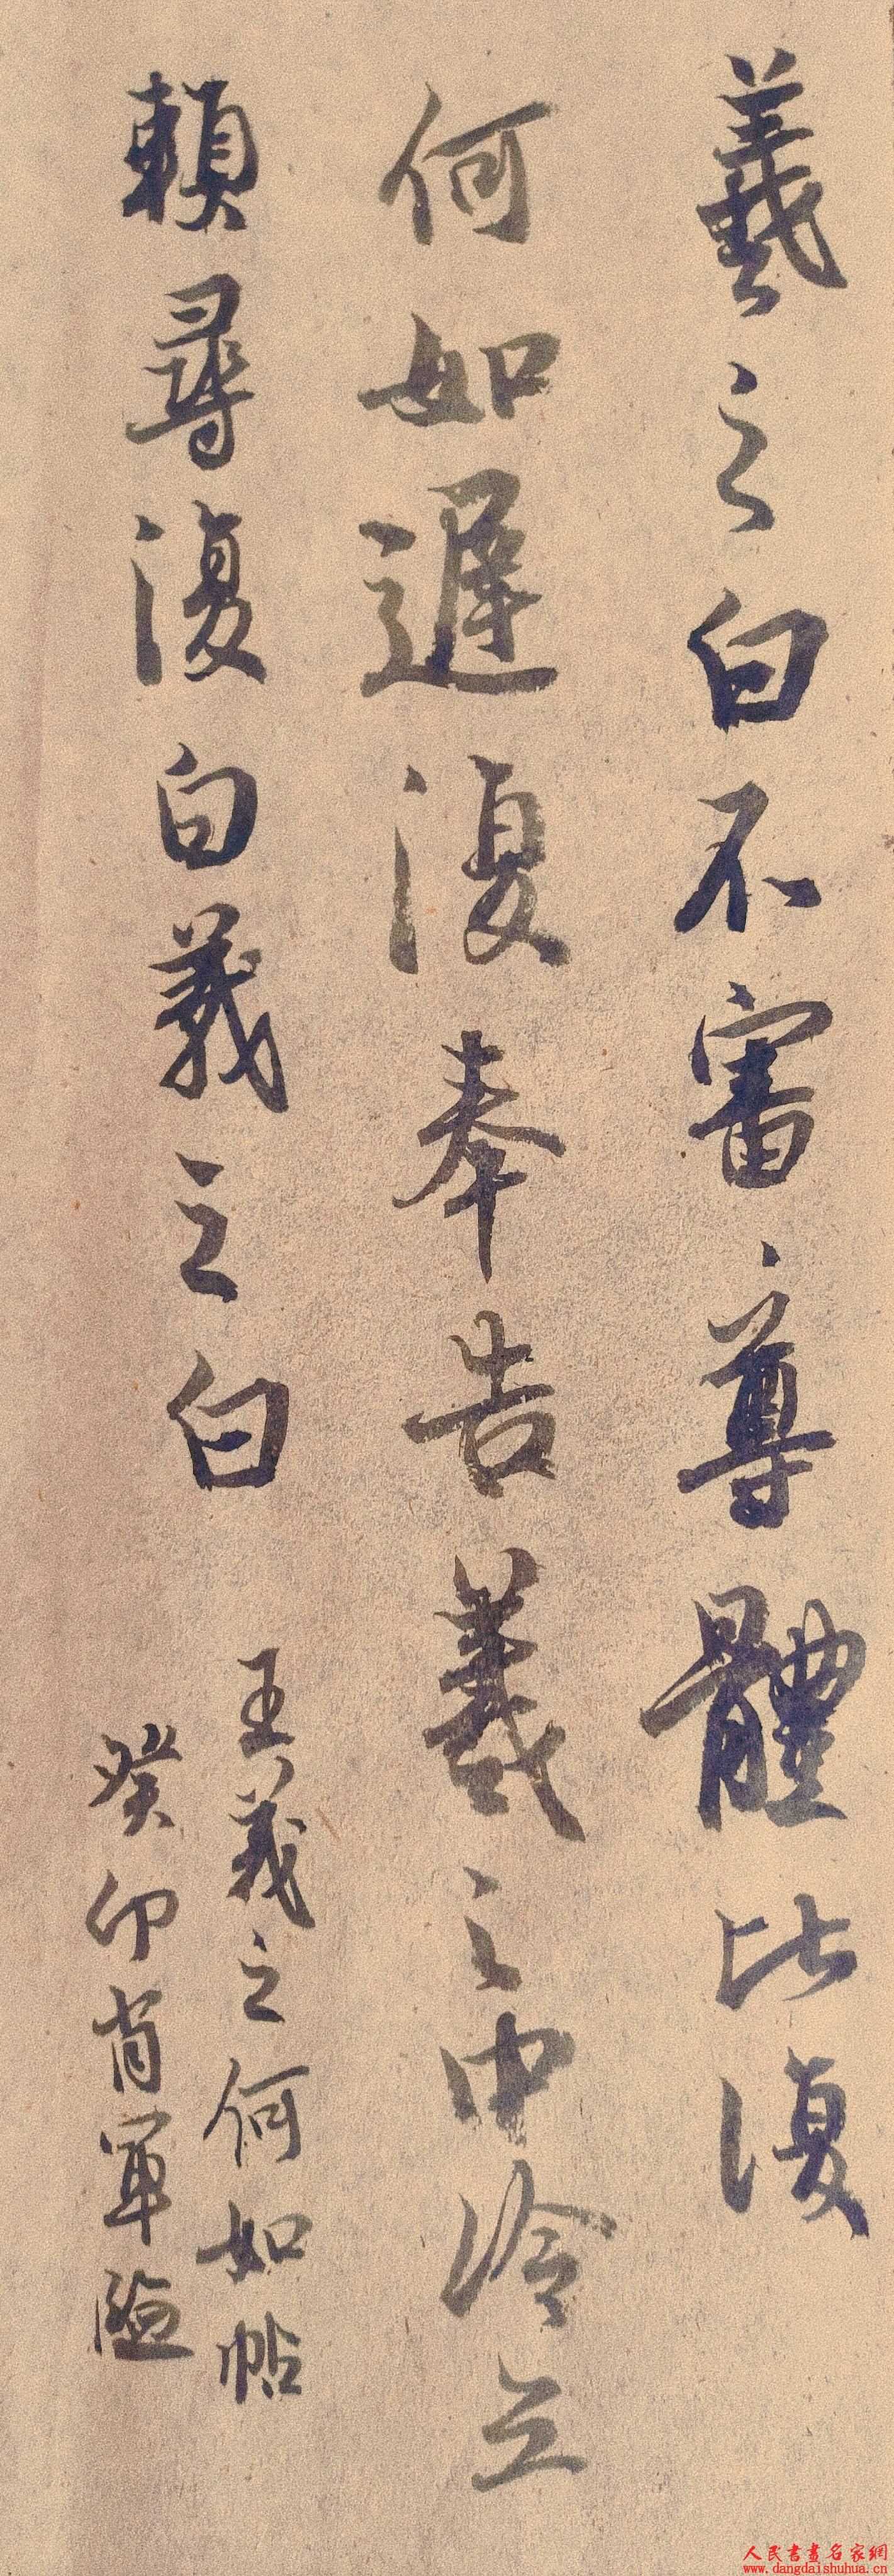 羲之白不審尊體比復
何如遲復奉告羲之中冷立
賴尋復白羲之白
王羲之何如帖
癸卯肖軍臨
人民書畫名家網
www.dangdaishuhua.cn